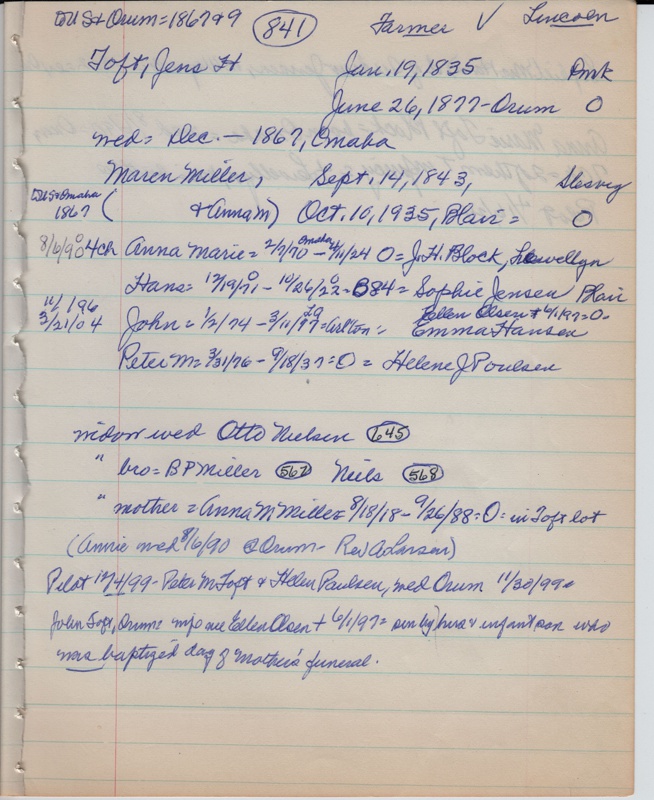 US & Orum = 1867 & 9 841 Farmer V Lincoln
Toft, Jens H Jan. 19, 1835 Dmk
June 26, 1877 - Orum O
wed = Dec. — 1867, Omaha
Maren Miller, Sept. 14, 1843, Slesvig
US & Omaha
1867 ( & Anna M) Oct. 10, 1935, Blair = O
8/6/90 4ch Anna Marie = 2/7/70 Omaha - 4/11/24 O = J. H. Block, Llewellyn
Hans = 12/19/71 O - 10/26/22 = B84 = Sophie Jensen Blair
11/ 1 96 Ellen Olsen + 6/1/97 = O
3/21/04 John = 1/2/74 - 3/11/97 = Arlton = Emma Hansen
Peter M = 3/31/76 - 9/18/37 = O = Helene J Poulsen
widow wed Otto Nielsen 645
" bro = B P Miller 567 Niels 568
" mother = Anna M Miller = 8/18/18 - 9/26/88 = O = in Toft lot
(Annie wed 8/6/90 @ Orum - Rev A Larsen)
Pilot 12/4/99 - Peter M Toft & Helen Paulsen, wed Orum 11/30/99 =
John Toft, Orum = wife nee Ellen Olsen + 6/1/97 = surv by hus & infant son who
was baptized day of Mother's funeral.